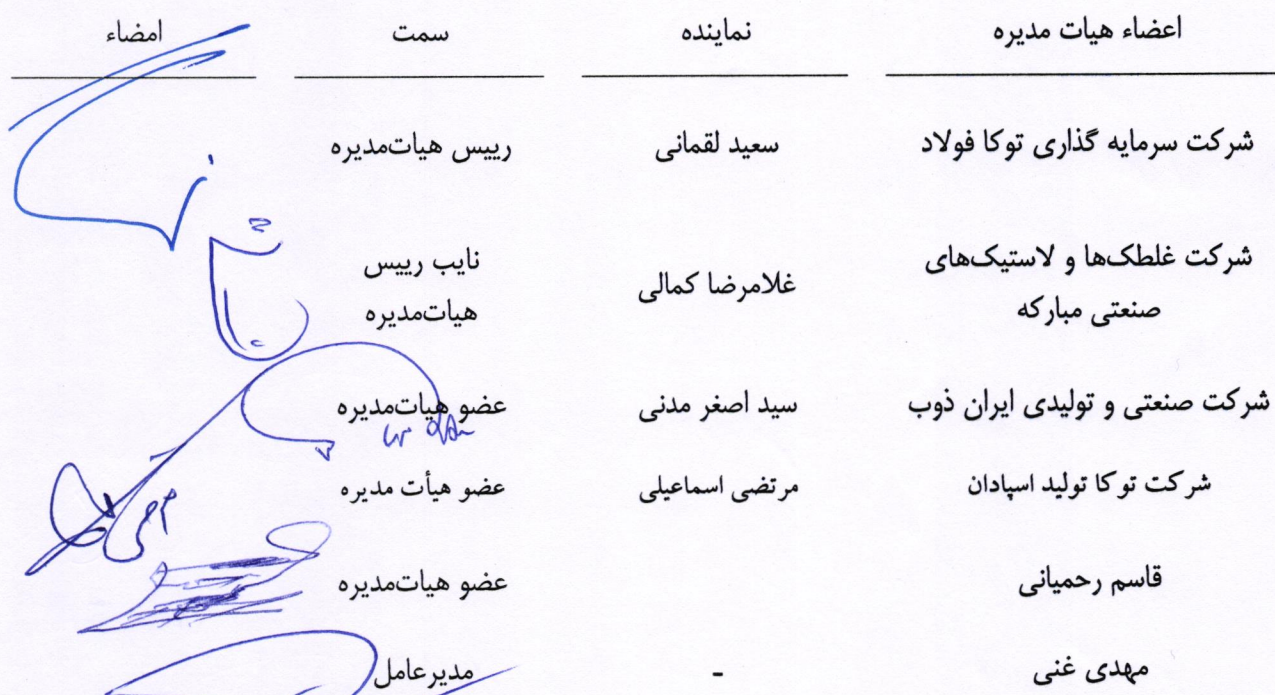 اعضاء هیات مدیره نماینده سمت امضاء
شرکت سرمایه گذاری توکا فولاد سعید لقمانی رییس هیات‌مدیره
شرکت غلطک‌ها و لاستیک‌های صنعتی مبارکه غلامرضا کمالی نایب رییس هیات‌مدیره
شرکت صنعتی و تولیدی ایران ذوب سید اصغر مدنی عضو هیات‌مدیره
شرکت توکا تولید اسپادان مرتضی اسماعیلی عضو هیأت مدیره
قاسم رحمیانی عضو هیات‌مدیره
مهدی غنی - مدیرعامل